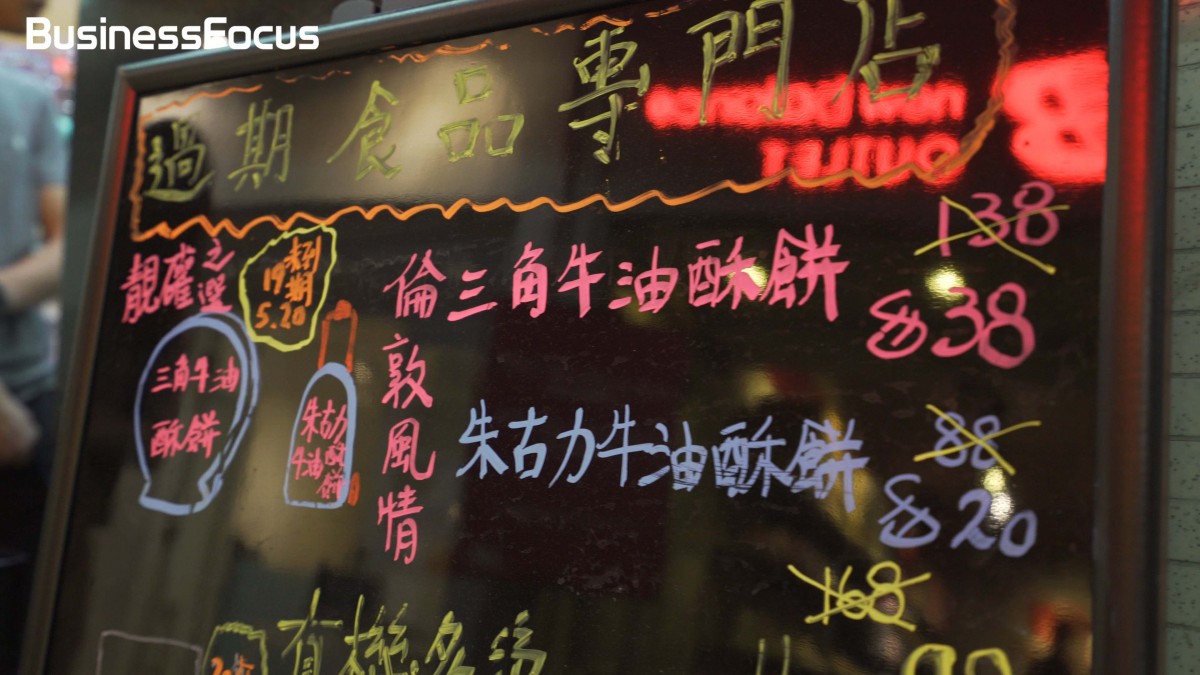 BusinessFocus
過期食品專門店
靚確之選
19 期
5.20
三角牛油
酥餅
朱古力
牛油酥
餅
倫敦風情
三角牛油酥餅
138
38
朱古力牛油酥餅
88
20
168
有機